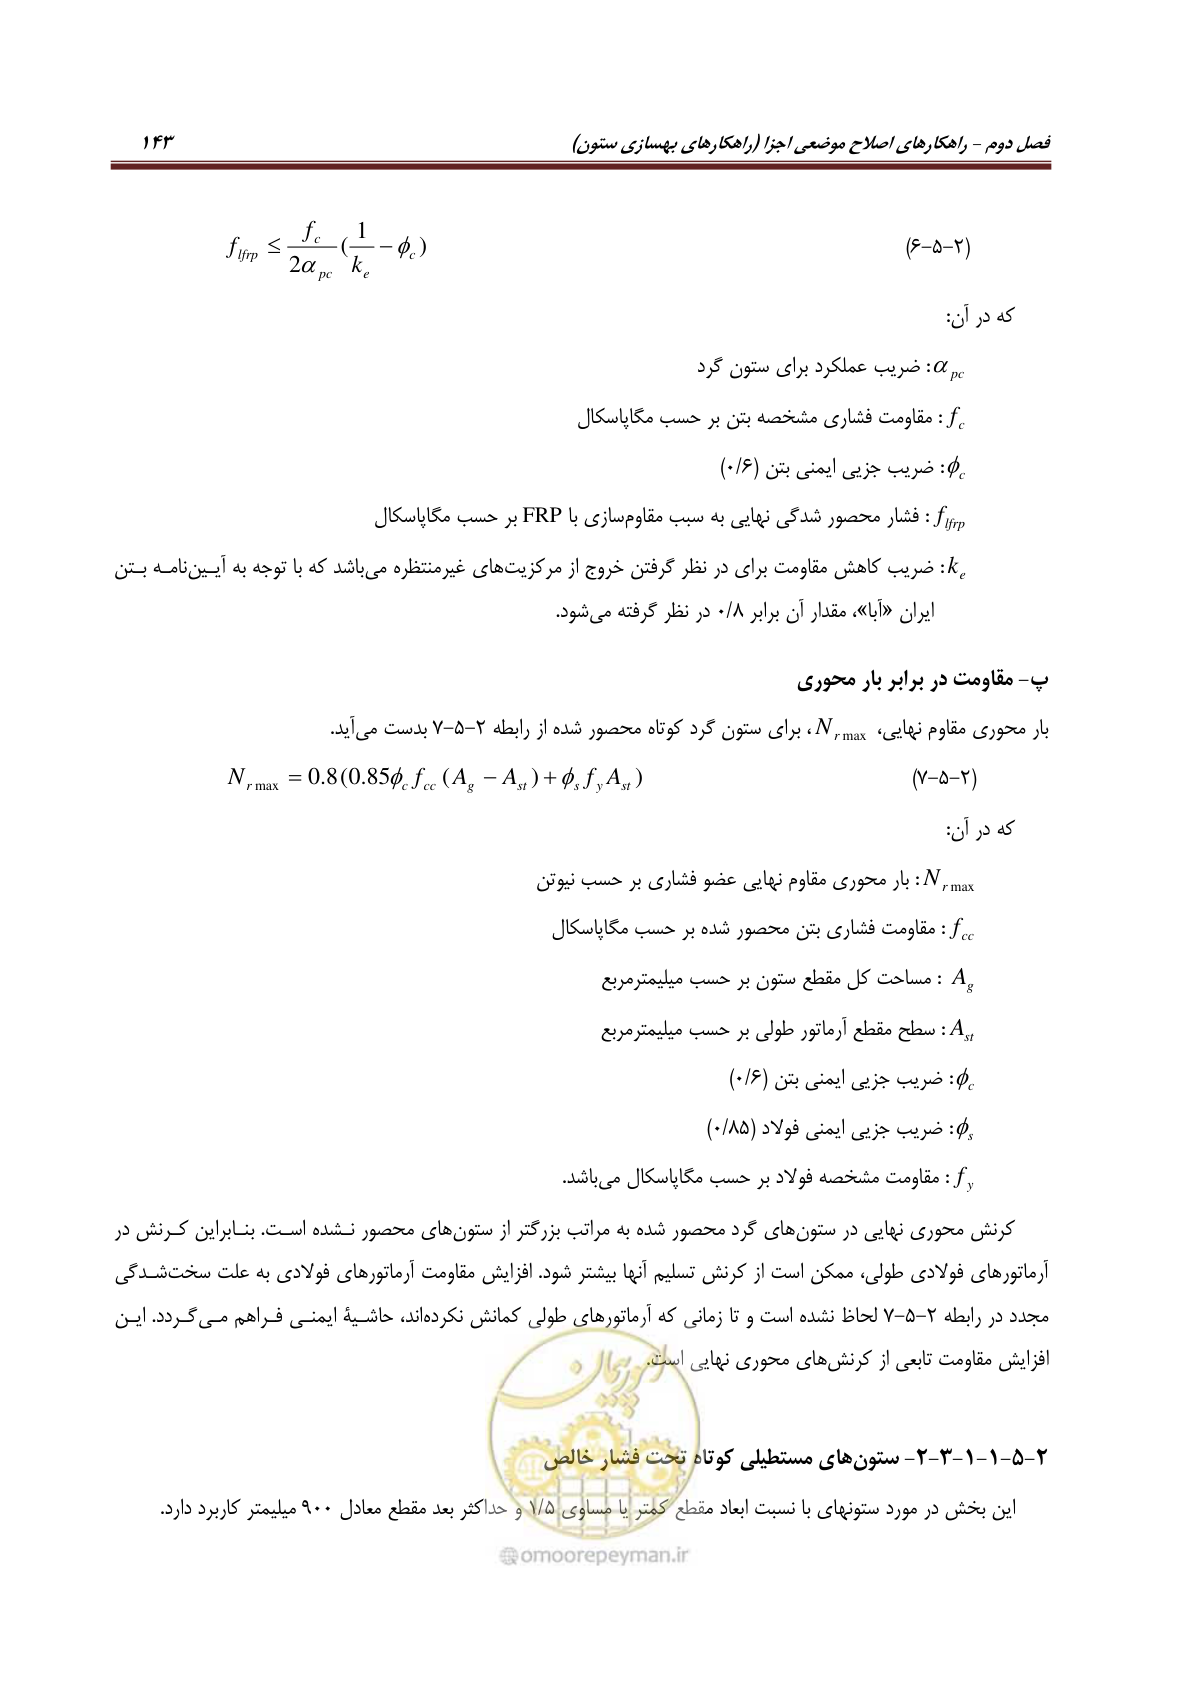 فصل دوم – راهکارهای اصلاح موضعی اجزا (راهکارهای بهسازی ستون) ۱۴۳
(۲-۵-۶) f_{lfrp} ≤ \frac{f_c}{2α_{pc}} (\frac{1}{k_e} − ϕ_c)
که در آن:
α_{pc}: ضریب عملکرد برای ستون گرد
f_c: مقاومت فشاری مشخصه بتن بر حسب مگاپاسکال
ϕ_c: ضریب جزیی ایمنی بتن (۰/۶)
f_{lfrp}: فشار محصور شدگی نهایی به سبب مقاوم‌سازی با FRP بر حسب مگاپاسکال
k_e: ضریب کاهش مقاومت برای در نظر گرفتن خروج از مرکزیت‌های غیرمنتظره می‌باشد که با توجه به آیین‌نامه بتن
ایران «آبا»، مقدار آن برابر ۰/۸ در نظر گرفته می‌شود.
پ- مقاومت در برابر بار محوری
بار محوری مقاوم نهایی، N_{r max}، برای ستون گرد کوتاه محصور شده از رابطه ۲-۵-۷ بدست می‌آید.
(۲-۵-۷) N_{r max} = 0.8(0.85ϕ_c f_{cc} (A_g − A_{st}) + ϕ_s f_y A_{st})
که در آن:
N_{r max}: بار محوری مقاوم نهایی عضو فشاری بر حسب نیوتن
f_{cc}: مقاومت فشاری بتن محصور شده بر حسب مگاپاسکال
A_g : مساحت کل مقطع ستون بر حسب میلیمترمربع
A_{st}: سطح مقطع آرماتور طولی بر حسب میلیمترمربع
ϕ_c: ضریب جزیی ایمنی بتن (۰/۶)
ϕ_s: ضریب جزیی ایمنی فولاد (۰/۸۵)
f_y: مقاومت مشخصه فولاد بر حسب مگاپاسکال می‌باشد.
کرنش محوری نهایی در ستون‌های گرد محصور شده به مراتب بزرگتر از ستون‌های محصور نشده است. بنابراین کرنش در
آرماتورهای فولادی طولی، ممکن است از کرنش تسلیم آنها بیشتر شود. افزایش مقاومت آرماتورهای فولادی به علت سخت‌شدگی
مجدد در رابطه ۲-۵-۷ لحاظ نشده است و تا زمانی که آرماتورهای طولی کمانش نکرده‌اند، حاشیۀ ایمنی فراهم می‌گردد. این
افزایش مقاومت تابعی از کرنش‌های محوری نهایی است.
امور پیمان
۲-۵-۱-۱-۳-۲- ستون‌های مستطیلی کوتاه تحت فشار خالص
این بخش در مورد ستونهای با نسبت ابعاد مقطع کمتر یا مساوی ۱/۵ و حداکثر بعد مقطع معادل ۹۰۰ میلیمتر کاربرد دارد.
@omoorepeyman.ir